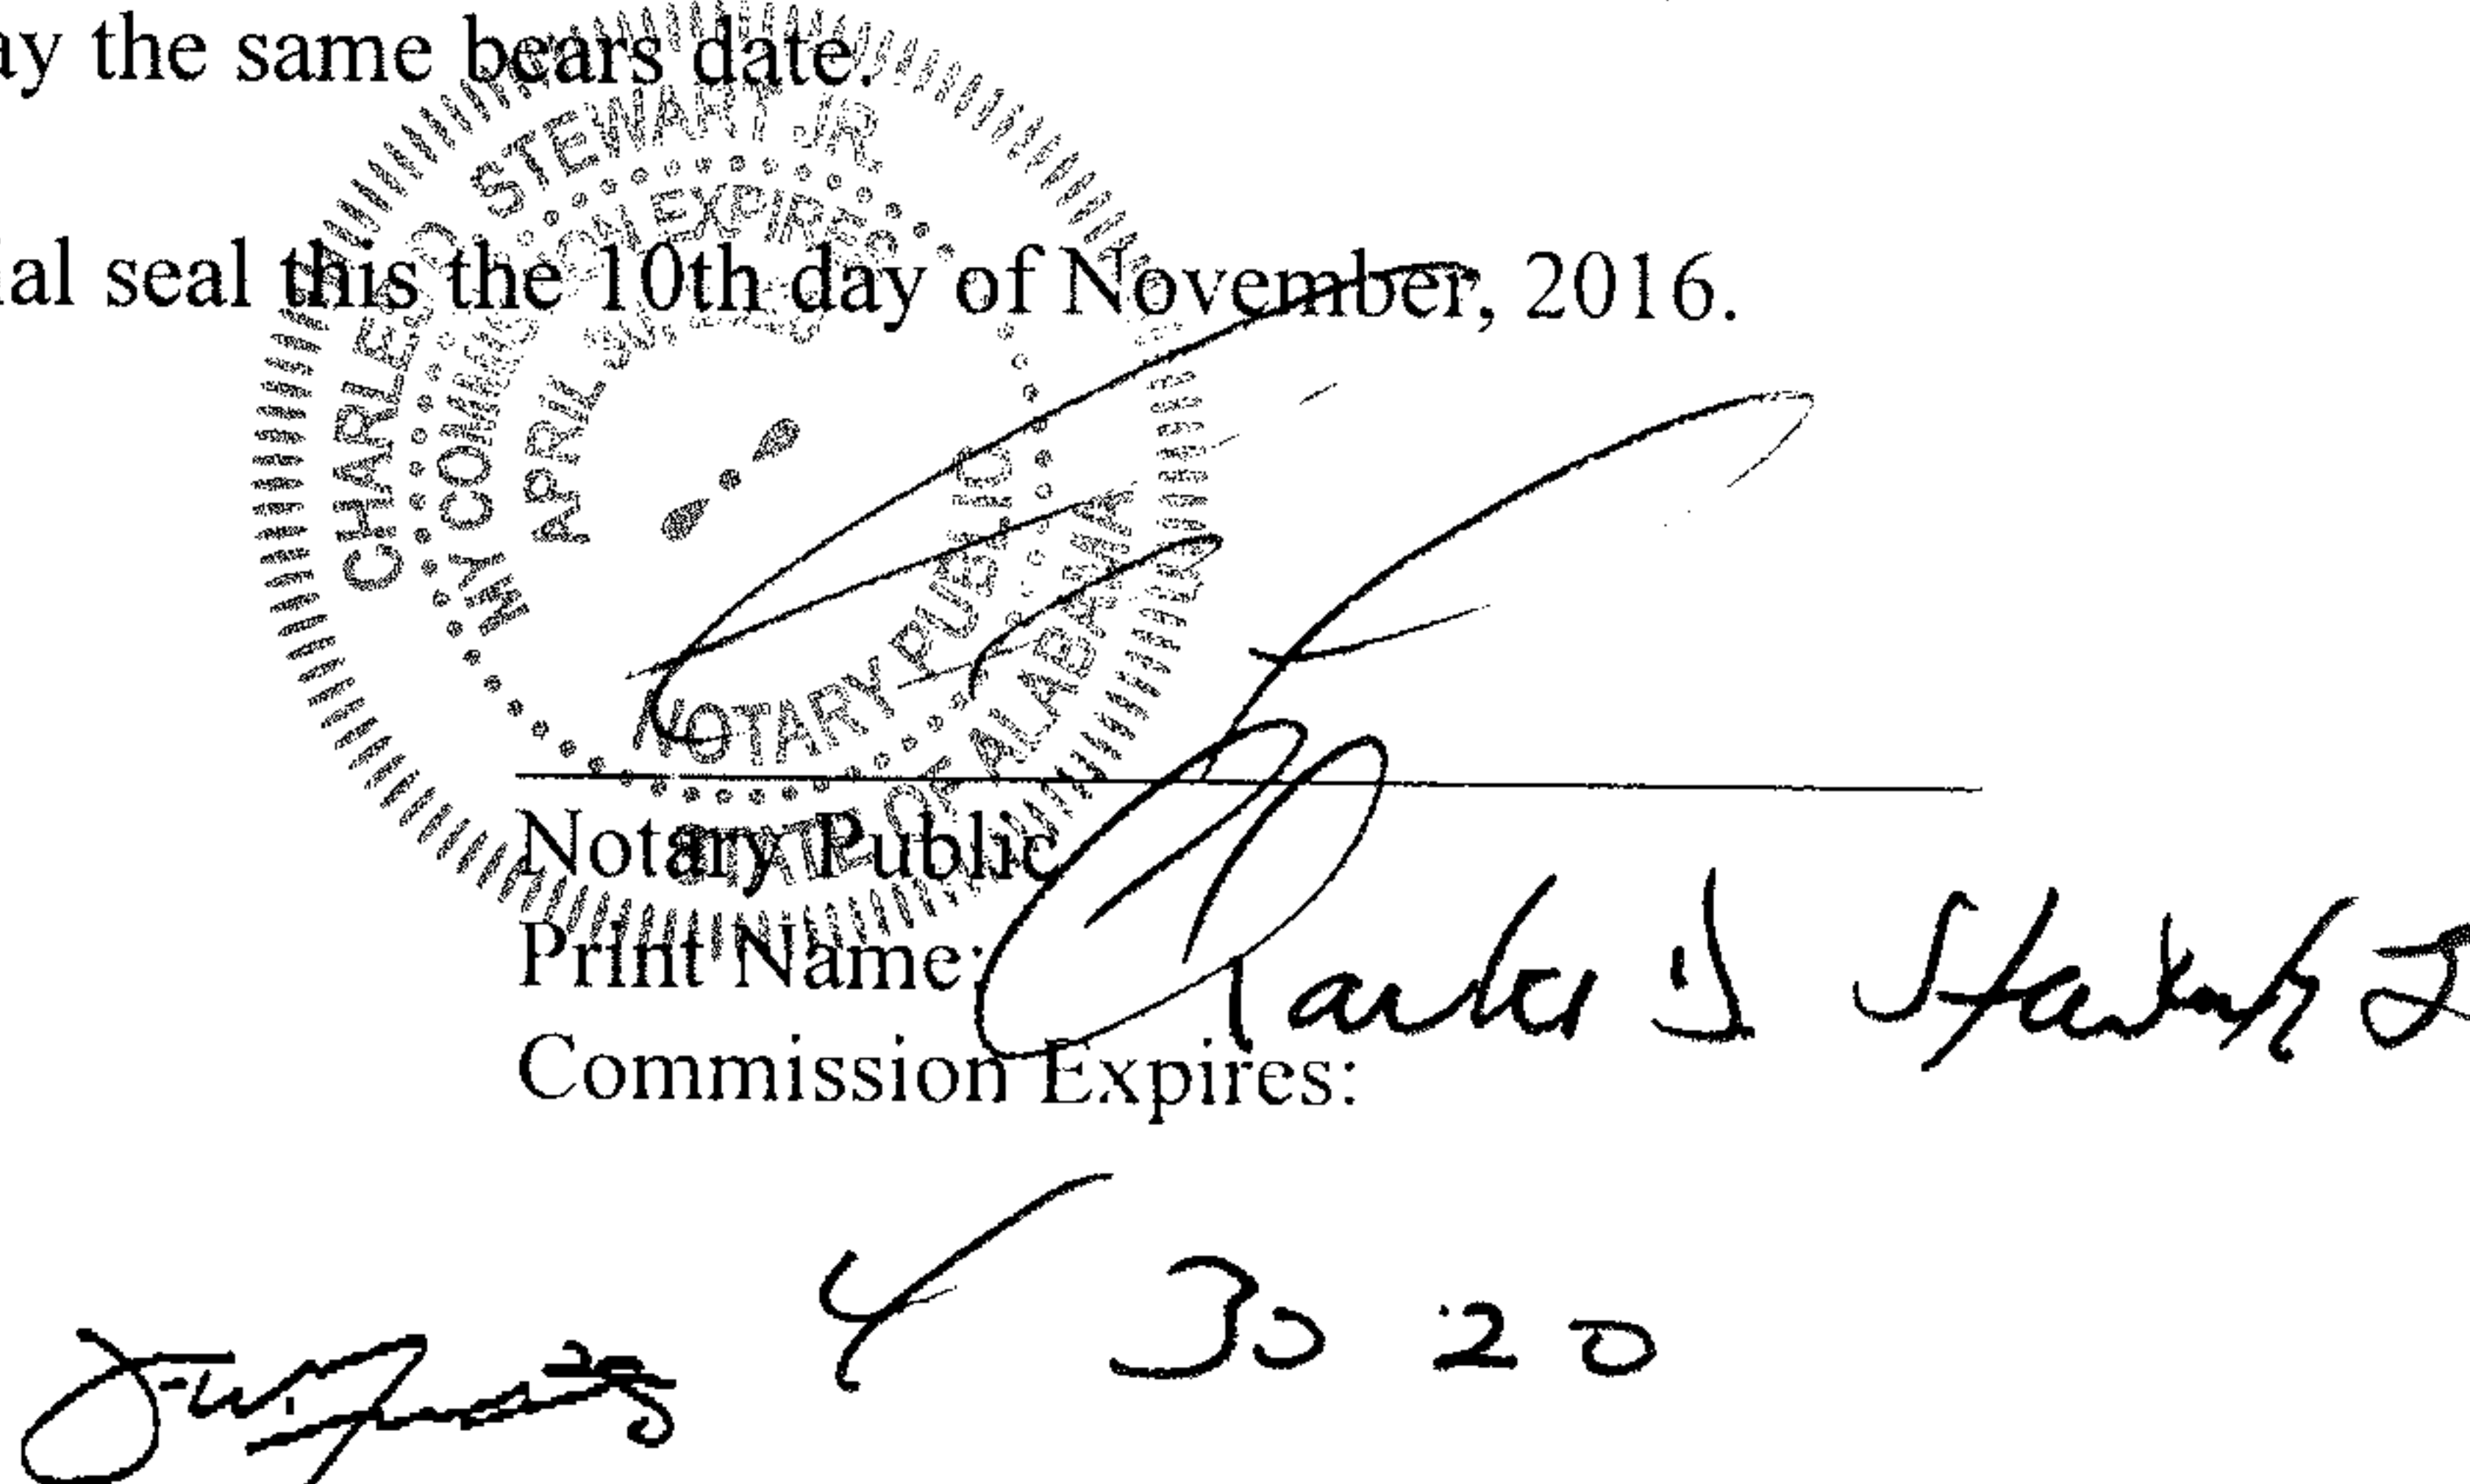 ay the same bears date.
ial seal this the 10th day of November, 2016.
CHARLES D STEWART JR
MY COMMISSION EXPIRES
APRIL
NOTARY PUBLIC
STATE OF ALABAMA
Notary Public
Print Name: Charles D Stewart J
Commission Expires:
4 30 20